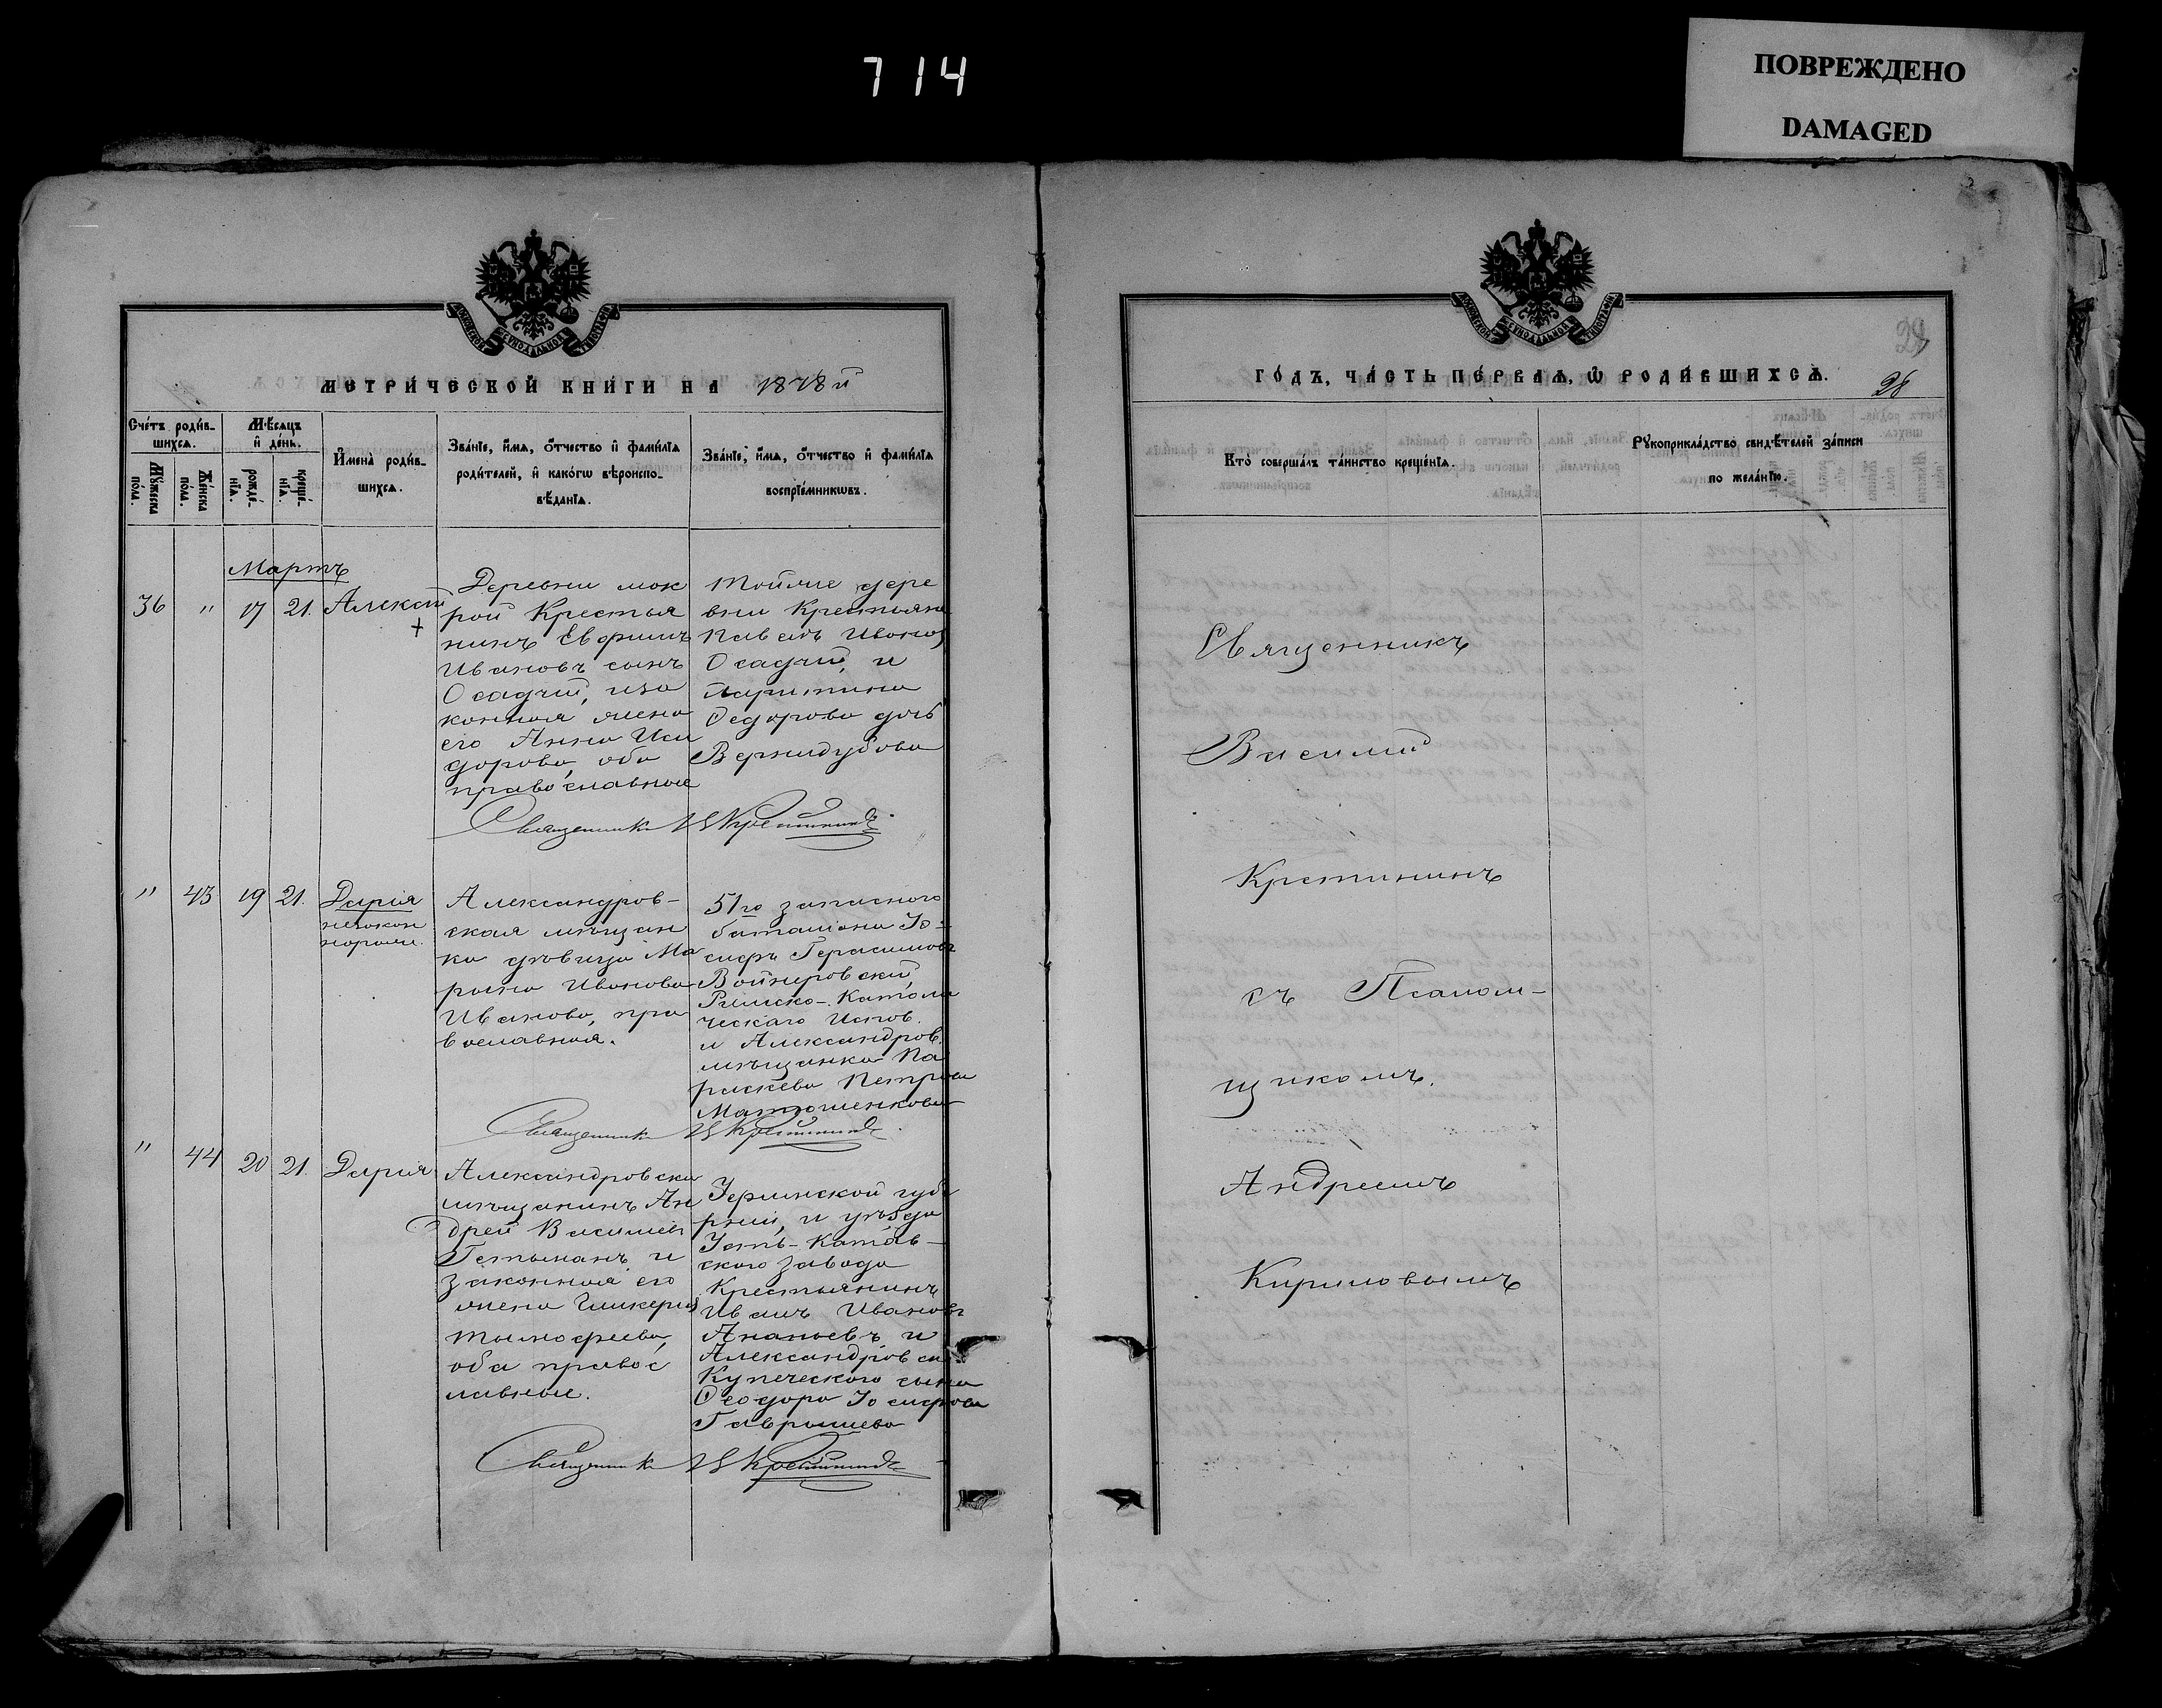 714
ПОВРЕЖДЕНО
DAMAGED
МОСКОВСКОЙ СѴНОДАЛЬНОЙ ТИПОГРАФІИ
МЕТРИ́ЧЕСКОЙ КНИ́ГИ НА 1878й
Сче́тъ роди́в-
шихсѧ.
Мѣ́сѧцъ
и҆ де́нь.
Мꙋ́жеска
по́ла.
Же́нска
по́ла.
рожде́-
нїѧ.
креще́-
нїѧ.
И҆мена̀ роди́в-
шихсѧ.
Зва́нїе, и҆́мѧ, ѻ҆́тчество и҆ фами́лїѧ
роди́телей, и҆ како́гѡ вѣроиспо-
вѣ́данїѧ.
Зва́нїе, и҆́мѧ, ѻ҆́тчество и҆ фами́лїѧ
воспрїе́мникѡвъ.
Мартъ
36 " 17 21. Алексій
+
Деревни мок
рой Крестья
нинъ Евфимъ
Ивановъ сынъ
Осадчій, и за
конная жена
его Анна Иси
дорова, оба
православные
Тойже дере
вни Крестьяне
Павелъ Ивановъ
Осадчій, и
Харитина
Федорова дочь
Вернидубова
Священникъ В Крестининъ
" 43 19 21. Дарія
незакон
норожд.
Александров-
ская мѣщан
ка дѣвица Ма
рина Иванова
Иванова, пра
вославная.
51го запаснаго
баталіона Іо-
сифъ Герасимовъ
Войнеровскій,
Римско-Католи
ческаго Испов.
и Александров.
мѣщанка Па
раскева Петрова
Матюшенкова
Священникъ В Крестининъ
" 44 20 21. Дарія
Александровскій
мѣщанинъ Ан
дрей Васильевъ
Гетьманъ и
законная его
жена Гликерія
Тимофеева,
оба правос
лавные.
Уфимской губе
рніи, и уѣзда
Усть-Катав-
скаго завода
Крестьянинъ
Иванъ Ивановъ
Ананьевъ и
Александровска
Купеческаго сына
Ѳеодора Іосифова
Гаврышева
Священникъ В Крестининъ
МОСКОВСКОЙ СѴНОДАЛЬНОЙ ТИПОГРАФІИ
29
ГО́ДЪ, ЧА́СТЬ ПЕ́РВАѦ, Ѽ РОДИ́ВШИХСѦ.
28
Кто̀ соверша́лъ та́инство креще́нїѧ.
Рꙋкоприкла́дство свидѣ́телей за́писи
по жела́нїю.
Священникъ
Василій
Крестининъ
съ Псалом-
щикомъ
Андреемъ
Кириловымъ